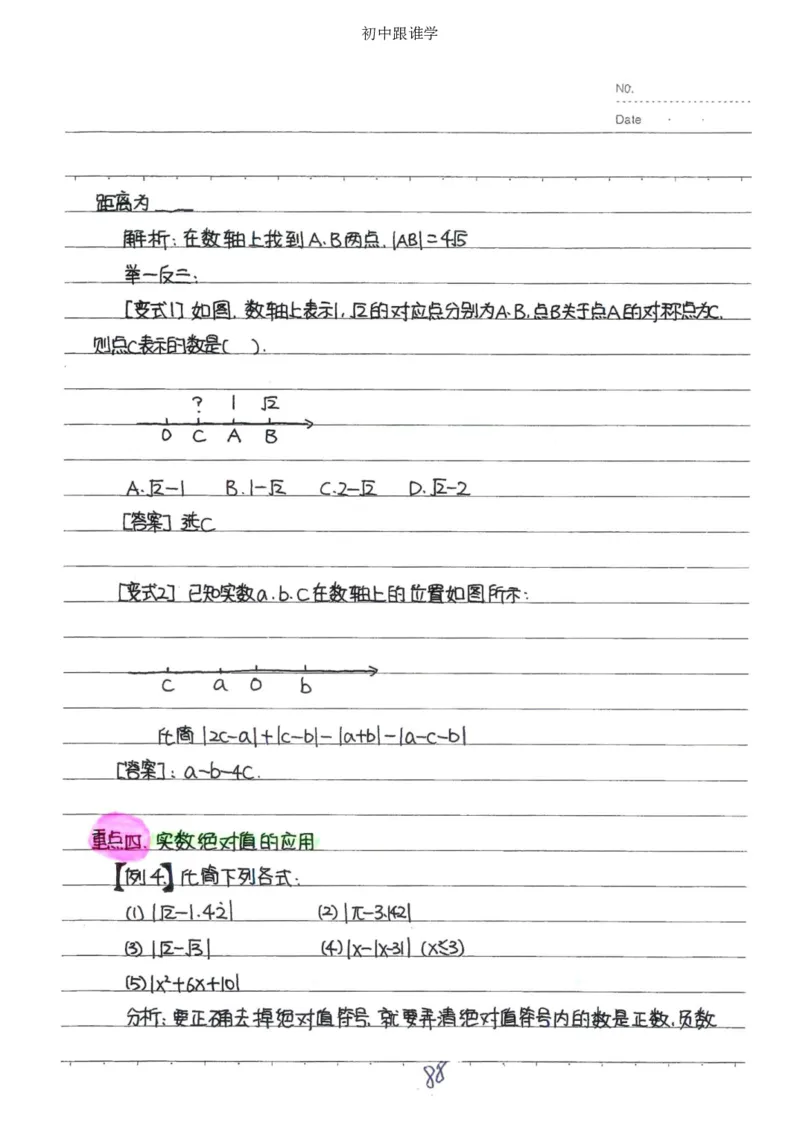 初中跟谁学
No.
Date
距离为____
解析:在数轴上找到A、B两点,|AB|=4√5
举一反三:
[变式1] 如图,数轴上表示1,√2的对应点分别为A、B,点B关于点A的对称点为C,
则点C表示的数是( ).
? 1 √2
0 C A B
A.√2-1 B.1-√2 C.2-√2 D.√2-2
[答案] 选C
[变式2] 已知实数a、b、c在数轴上的位置如图所示:
c a 0 b
化简 |2c-a|+|c-b|-|a+b|-|a-c-b|
[答案]:a-b-4c.
重点四.实数绝对值的应用
【例4.】化简下列各式:
(1) |√2-1.42| (2) |π-3.142|
(3) |√2-√3| (4) |x-|x-3|| (x≤3)
(5) |x²+6x+10|
分析:要正确去掉绝对值符号,就要弄清绝对值符号内的数是正数,负数
88